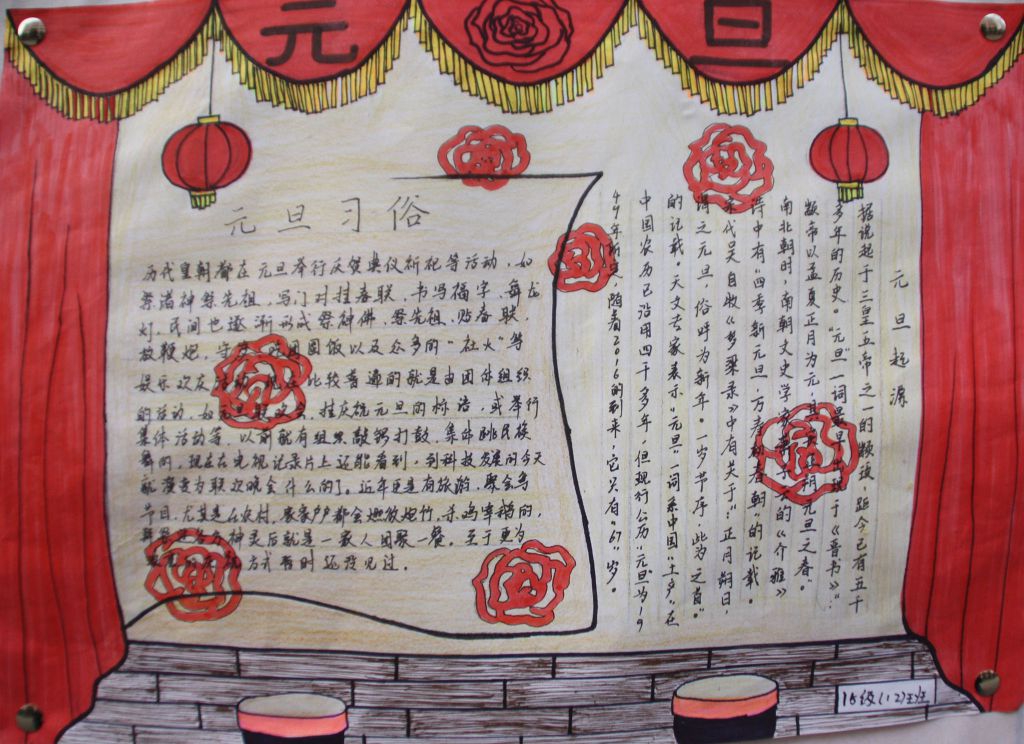 元旦
元旦习俗
历代皇朝都在元旦举行庆贺典仪祈祀等活动，如
祭诸神祭先祖，写门对挂春联，书写福字、舞龙
灯，民间也逐渐形成祭神佛、祭先祖、贴春联、
放鞭炮、守岁、吃团圆饭以及众多的“社火”等
娱乐欢庆活动。现在比较普遍的就是由团体组织
的活动，如元旦联欢会，挂庆祝元旦的标语，或举行
集体活动等，以前就有组织敲锣打鼓，集体跳民族
舞的，现在在电视记录片上还能看到，到科技发展的今天
就演变为联欢晚会什么的了。近年更是有旅游、聚会等
节目，尤其是在农村，家家户户都会燃放炮竹、杀鸡宰鹅的，
各方神灵后就是一家人团聚一餐。至于更为
方式暂时还没见过。
元旦起源
据说起于三皇五帝之一的颛顼，距今已有五千
多年的历史。“元旦”一词最早出现于《晋书》：
颛帝以孟夏正月为元，其实正朔元旦之春。
南北朝时，南朝文史学家萧子云的《介雅》
诗中有“四季新元旦，万寿初春朝”的记载。
宋代吴自牧《梦粱录》中有关于“正月朔日，
谓之元旦，俗呼为新年。一岁节序，此为之首”
的记载。天文专家表示“元旦”一词系中国“土产”在
中国农历已沿用四千多年，但现行公历“元旦”为19
49年所定，随着2016的到来，它只有“67”岁。
15级(12)班